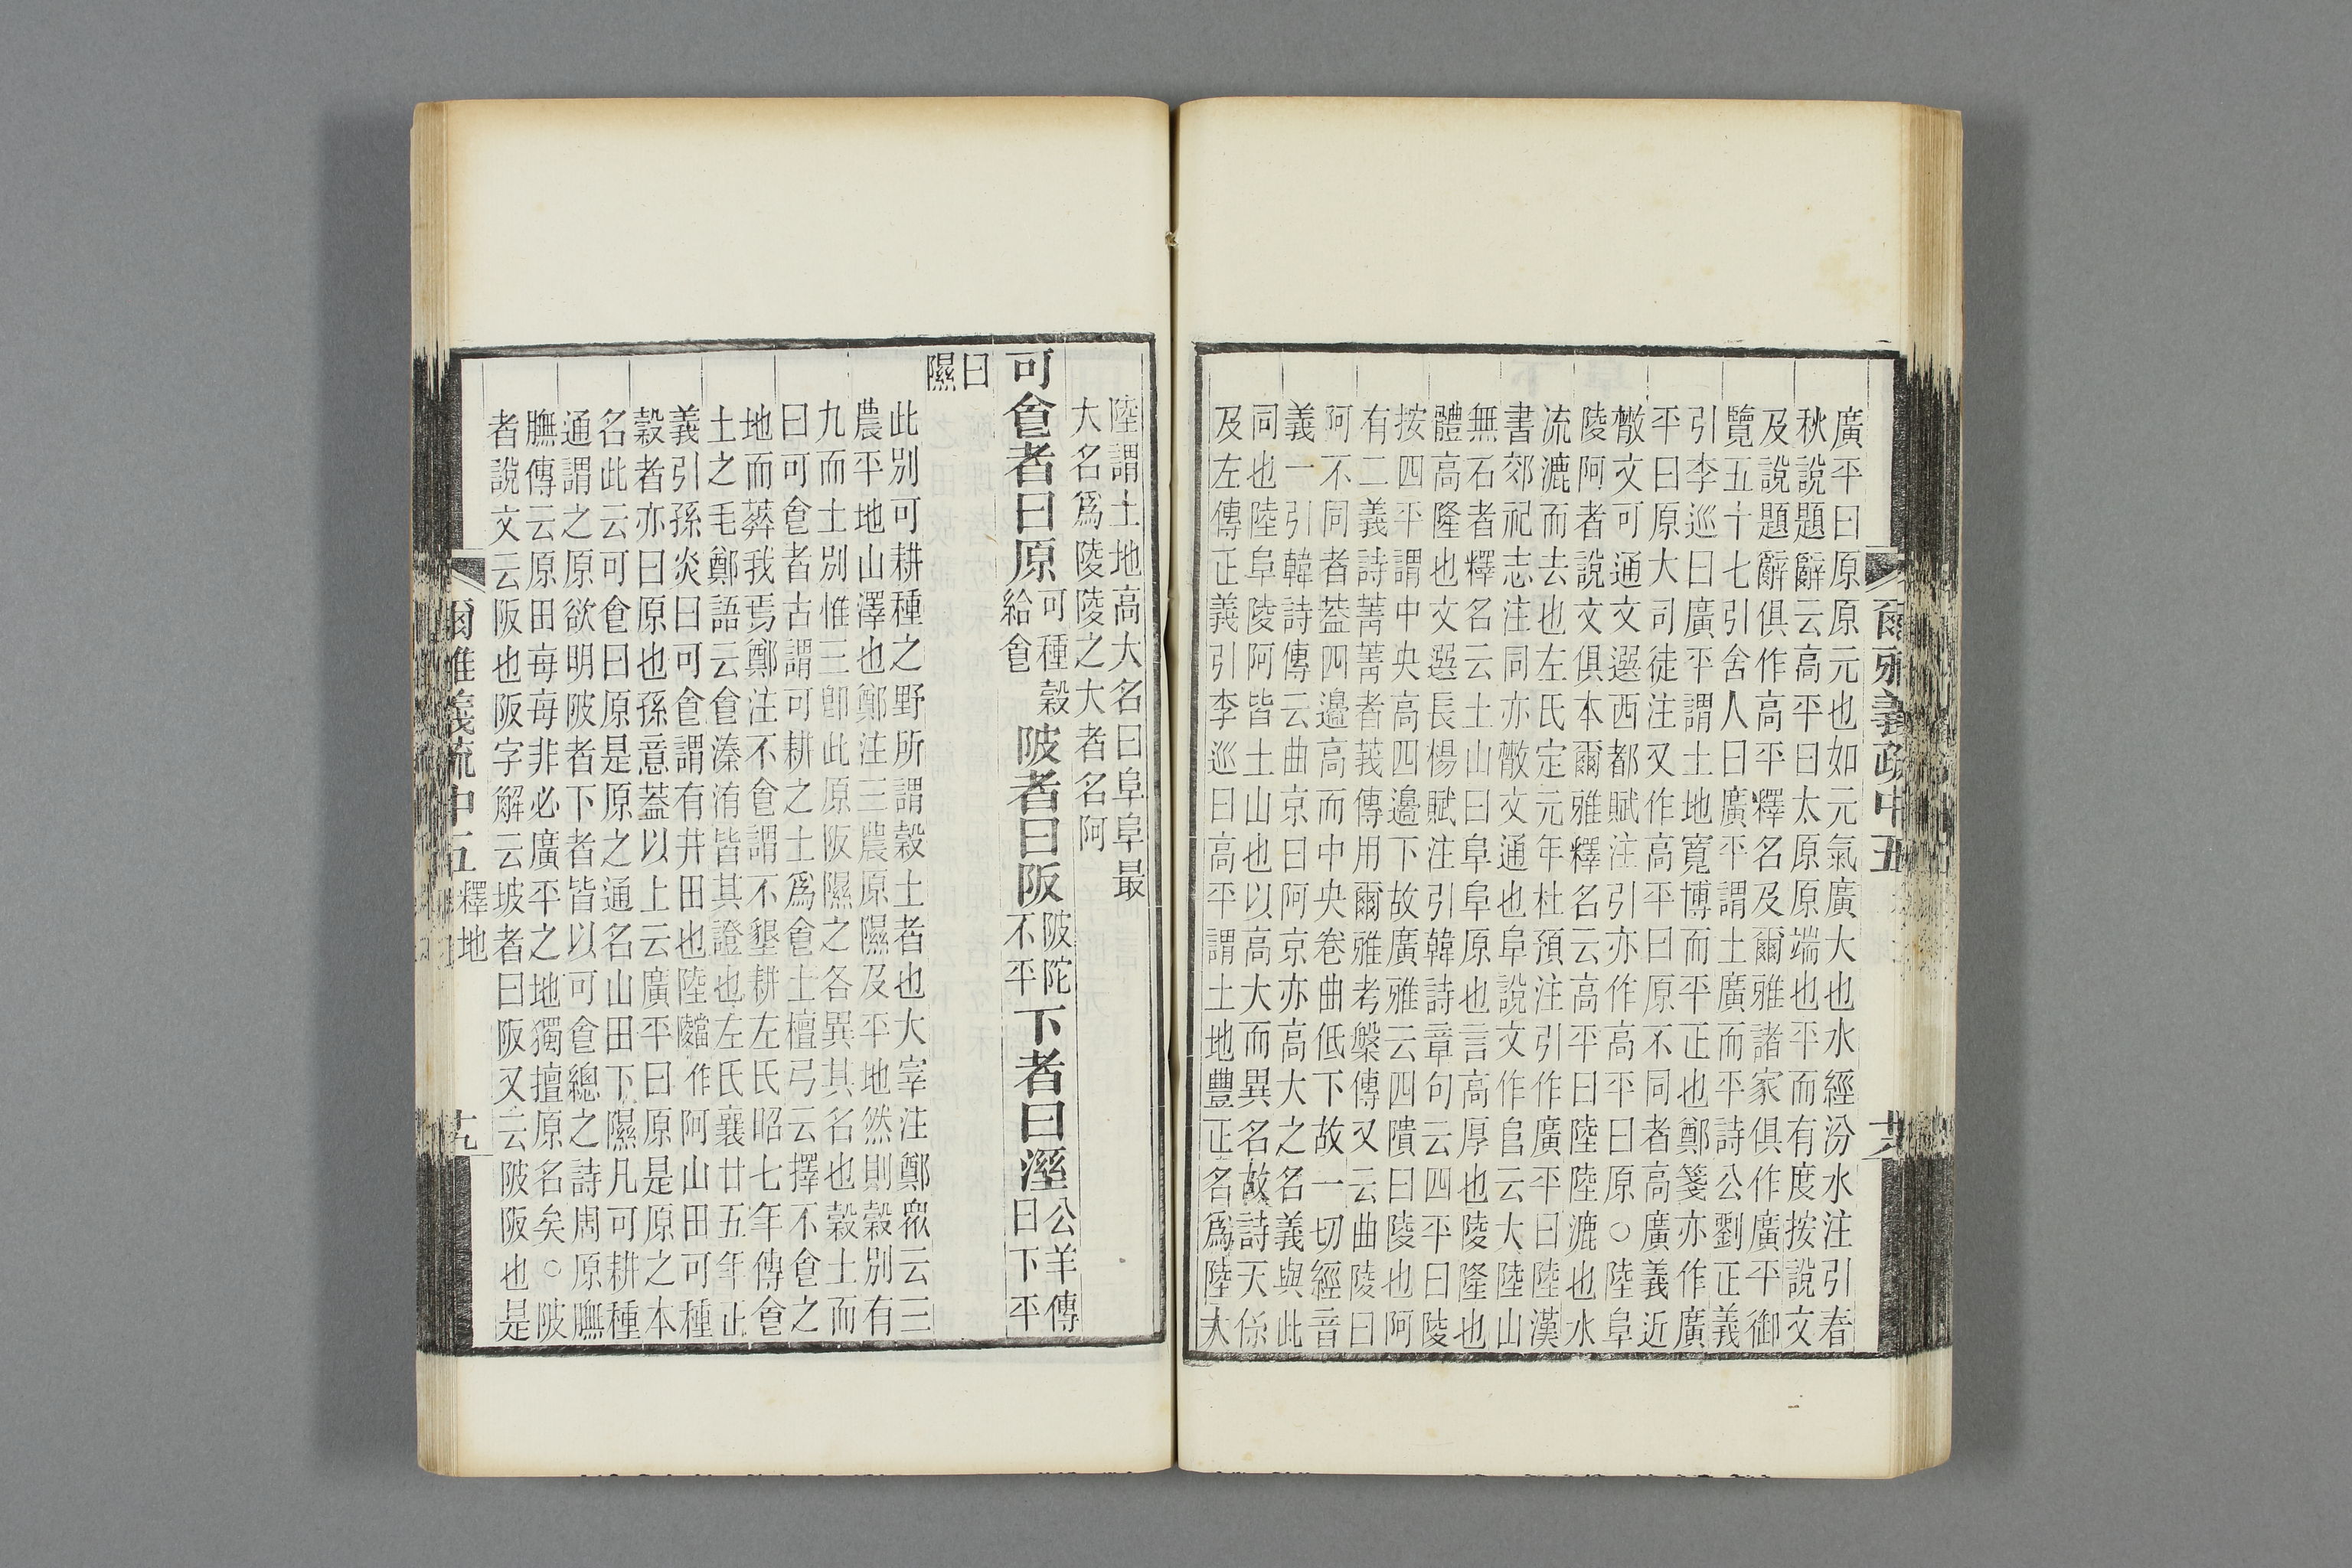 廣平曰原原元也如元氣廣大也水經汾水注引春
秋說題辭云高平曰太原原端也平而有度按說文
及說題辭俱作高平釋名及爾雅諸家俱作廣平御
覽五十七引舍人曰廣平謂土廣而平詩公劉正義
引李巡曰廣平謂土地寬博而平正也鄭箋亦作廣
平曰原大司徒注又作高平曰原不同者高廣義近
敵文可通文選西都賦注引亦作高平曰原○陸阜
陵阿者說文俱本爾雅釋名云高平曰陸陸漉也水
流漉而去也左氏定元年杜預注引作廣平曰陸漢
書郊祀志注同亦敵文通也阜說文作𨸏云大陸山
無石者釋名云土山曰阜阜原也言高厚也陵隆也
體高隆也文選長楊賦注引韓詩章句云四平曰陵
按四平謂中央高四邊下故廣雅云四隤曰陵也阿
有二義詩菁菁者莪傳用爾雅考槃傳又云曲陵曰
阿不同者葢四邊高而中央卷曲低下故一切經音
義一引韓詩傳云曲京曰阿京亦高大之名義與此
同也陸阜陵阿皆土山也以高大而異名故詩天保
及左傳正義引李巡曰高平謂土地豐正名爲陸大
爾雅義疏中五
陸謂土地高大名曰阜阜最
大名爲陵陵之大者名阿
可食者曰原可種穀給食陂者曰阪陂陀不平下者曰溼公羊傳曰下平
曰隰
此別可耕種之野所謂穀土者也大宰注鄭眾云三
農平地山澤也鄭注三農原隰及平地然則穀別有
九而土別惟三卽此原阪隰之各異其名也穀土而
曰可食者古謂可耕之土爲食土檀弓云擇不食之
地而葬我焉鄭注不食謂不墾耕左氏昭七年傳食
土之毛鄭語云食溱洧皆其證也左氏襄廿五年正
義引孫炎曰可食謂有井田也陸當作陵阿山田可種
穀者亦曰原也孫意葢以上云廣平曰原是原之本
名此云可食曰原是原之通名山田下隰凡可耕種
通謂之原欲明陂者下者皆以可食總之詩周原膴
膴傳云原田每每非必廣平之地獨擅原名矣○陂
者說文云阪也阪字解云坡者曰阪又云陂阪也是
爾雅義疏中五
釋地
十九